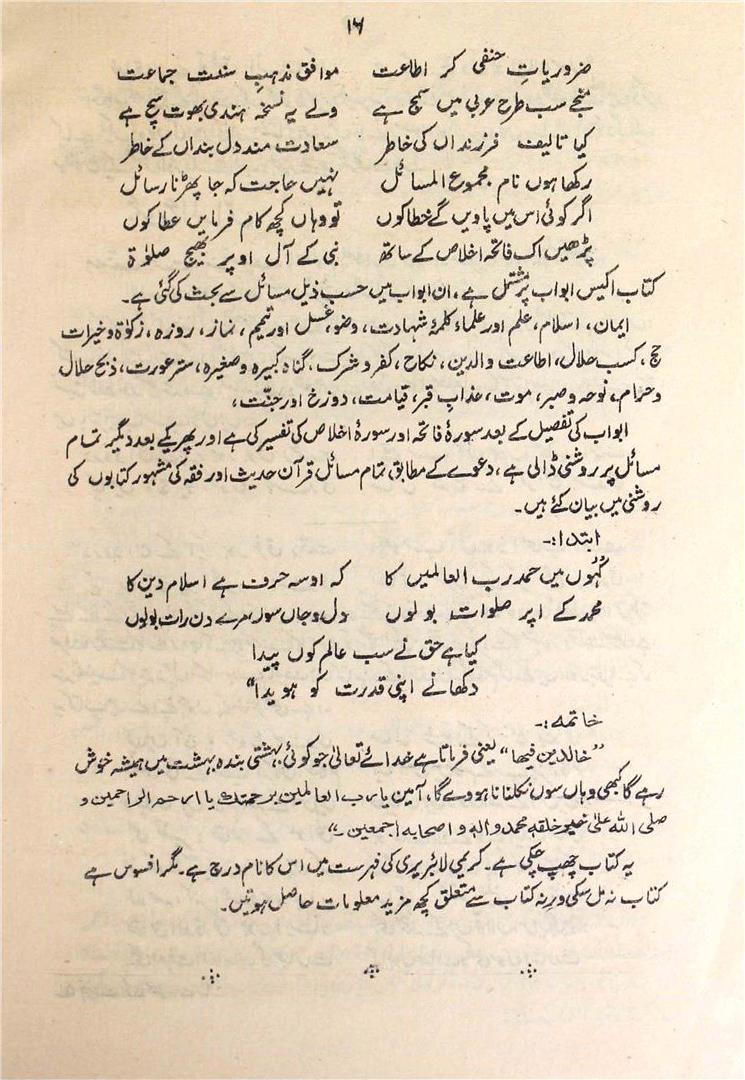 ۱۶
ضروریاتِ حنفی کر اطاعت موافق مذہبِ سنت جماعت
منجے سب طرح عربی میں سمج ہے ولے یہ نسخہ ہندی بھوت سچ ہے
کیا تالیف فرزنداں کی خاطر سعادت مند دل بنداں کے خاطر
رکھا ہوں نام مجموع المسائل نہیں حاجت کہ جا پھڑنا رسائل
اگر کوئی اس میں پاویں گے خطا کوں تو وہاں کچھ کام فرمایں عطا کوں
پڑھیں اک فاتحہ اخلاص کے ساتھ نبی کے آل اوپر بھیج صلوٰۃ
کتاب اکیس ابواب پر مشتمل ہے، ان ابواب میں حسب ذیل مسائل سے بحث کی گئی ہے۔
ایمان، اسلام، علم اور علماء کلمۂ شہادت، وضو، غسل اور تیمم، نماز، روزہ، زکوٰۃ و خیرات
حج، کسب حلال، اطاعت والدین، نکاح، کفر و شرک، گناہ کبیرہ و صغیرہ، ستر عورت، ذبح حلال
و حرام، نوحہ و صبر، موت، عذابِ قبر، قیامت، دوزخ اور جنّت،
ابواب کی تفصیل کے بعد سورۂ فاتحہ اور سورۂ اخلاص کی تفسیر کی ہے اور پھر یکے بعد دیگر تمام
مسائل پر روشنی ڈالی ہے، دعوے کے مطابق تمام مسائل قرآن حدیث اور فقہ کی مشہور کتابوں کی
روشنی میں بیان کئے ہیں۔
ابتدا :۔
کہُوں میں حمد رب العالمیں کا کہ اوسہ حرف ہے اسلام دین کا
محمد کے اپر صلوات بولوں دل و جاں سوں مرے دن رات بولوں
کیا ہے حق نے سب عالم کوں پیدا
دکھانے اپنی قدرت کو ہویدا“
خاتمہ :۔
”خالدین فیھا“ یعنی فرماتا ہے خدائے تعالیٰ جو کوئی بہشتی بندہ بہشت میں ہمیشہ خوش
رہے گا کبھی وہاں سوں نکلنا نا ہووے گا، آمین یا رب العالمین برحمتك یا ارحم الراحمین و
صلی اللہ علیٰ خیر خلقہ محمد و الہ و اصحابہ اجمعین۔“
یہ کتاب چھپ چکی ہے۔ کریمی لائبریری کی فہرست میں اس کا نام درج ہے۔ مگر افسوس ہے
کتاب نہ مل سکی ورنہ کتاب سے متعلق کچھ مزید معلومات حاصل ہوتیں۔